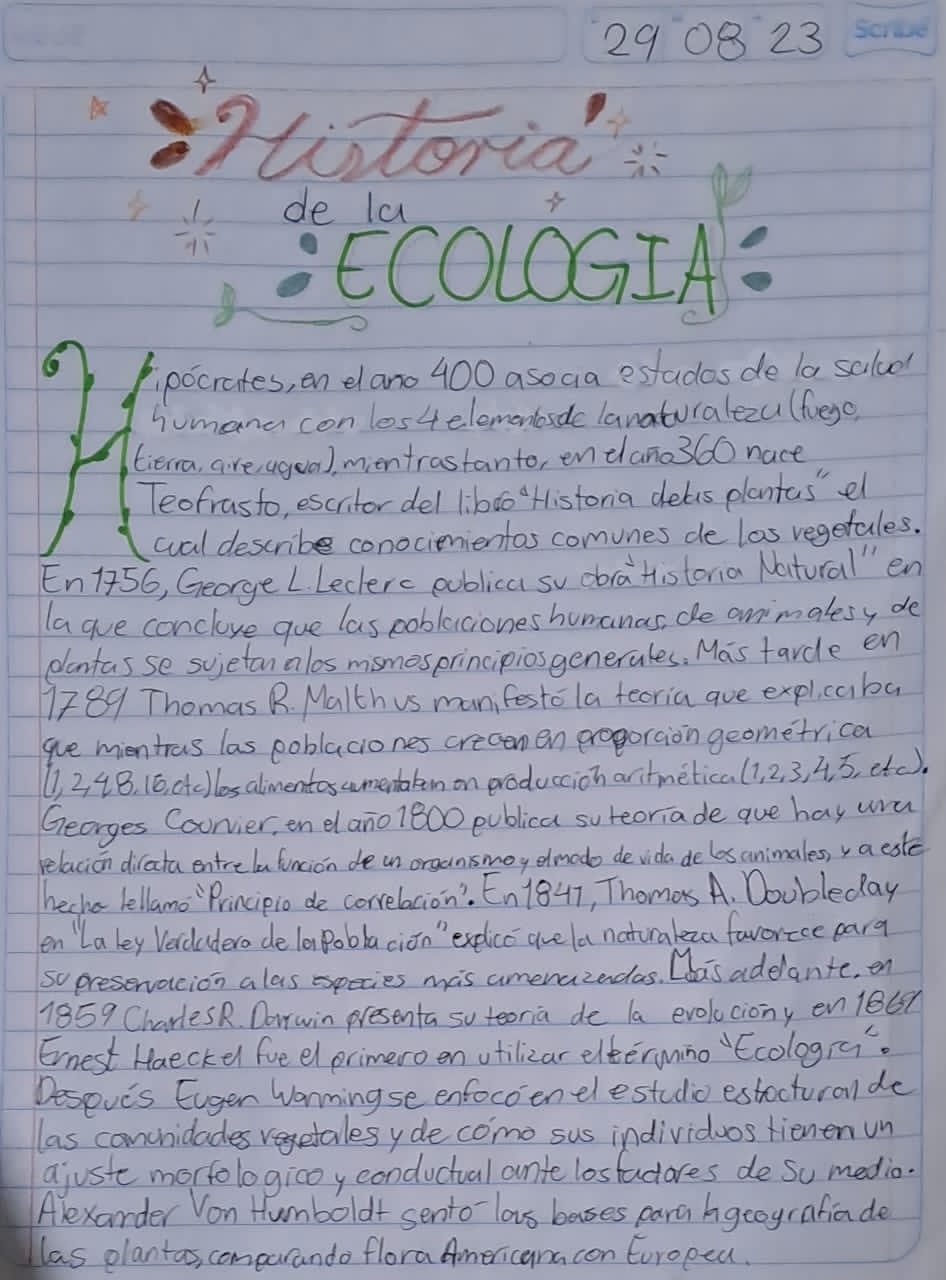 29 08 23 Scribe
Historia
de la
ECOLOGIA
Hipócrates, en el año 400 asocia estados de la salud
humana con los 4 elementos de la naturaleza (fuego,
tierra, aire, agua), mientras tanto, en el año 360 nace
Teofrasto, escritor del libro "Historia de las plantas" el
cual describe conocimientos comunes de los vegetales.
En 1756, George L. Leclerc publica su obra "Historia Natural" en
la que concluye que las poblaciones humanas, de animales y de
plantas se sujetan a los mismos principios generales. Más tarde en
1789 Thomas R. Malthus manifestó la teoría que explicaba
que mientras las poblaciones crecen en proporción geométrica
(1, 2, 4, 8, 16, etc) los alimentos aumentaban en producción aritmética (1, 2, 3, 4, 5, etc).
Georges Couvier, en el año 1800 publica su teoría de que hay una
relación directa entre la función de un organismo y el modo de vida de los animales, y a este
hecho le llamó "Principio de correlación". En 1841, Thomas A. Doubleday
en "La ley Verdadera de la Pobla ción" explicó que la naturaleza favorece para
su preservación a las especies más amenazadas. Más adelante, en
1859 Charles R. Darwin presenta su teoría de la evolución y en
Ernest Haeckel fue el primero en utilizar el término "Ecología".
Después Eugen Warming se enfocó en el estudio estructural de
las comunidades vegetales y de cómo sus individuos tienen un
ajuste morfologico y conductual ante los factores de su medio.
Alexander Von Humboldt sentó las bases para la geografía de
las plantas, comparando flora Americana con Europea.